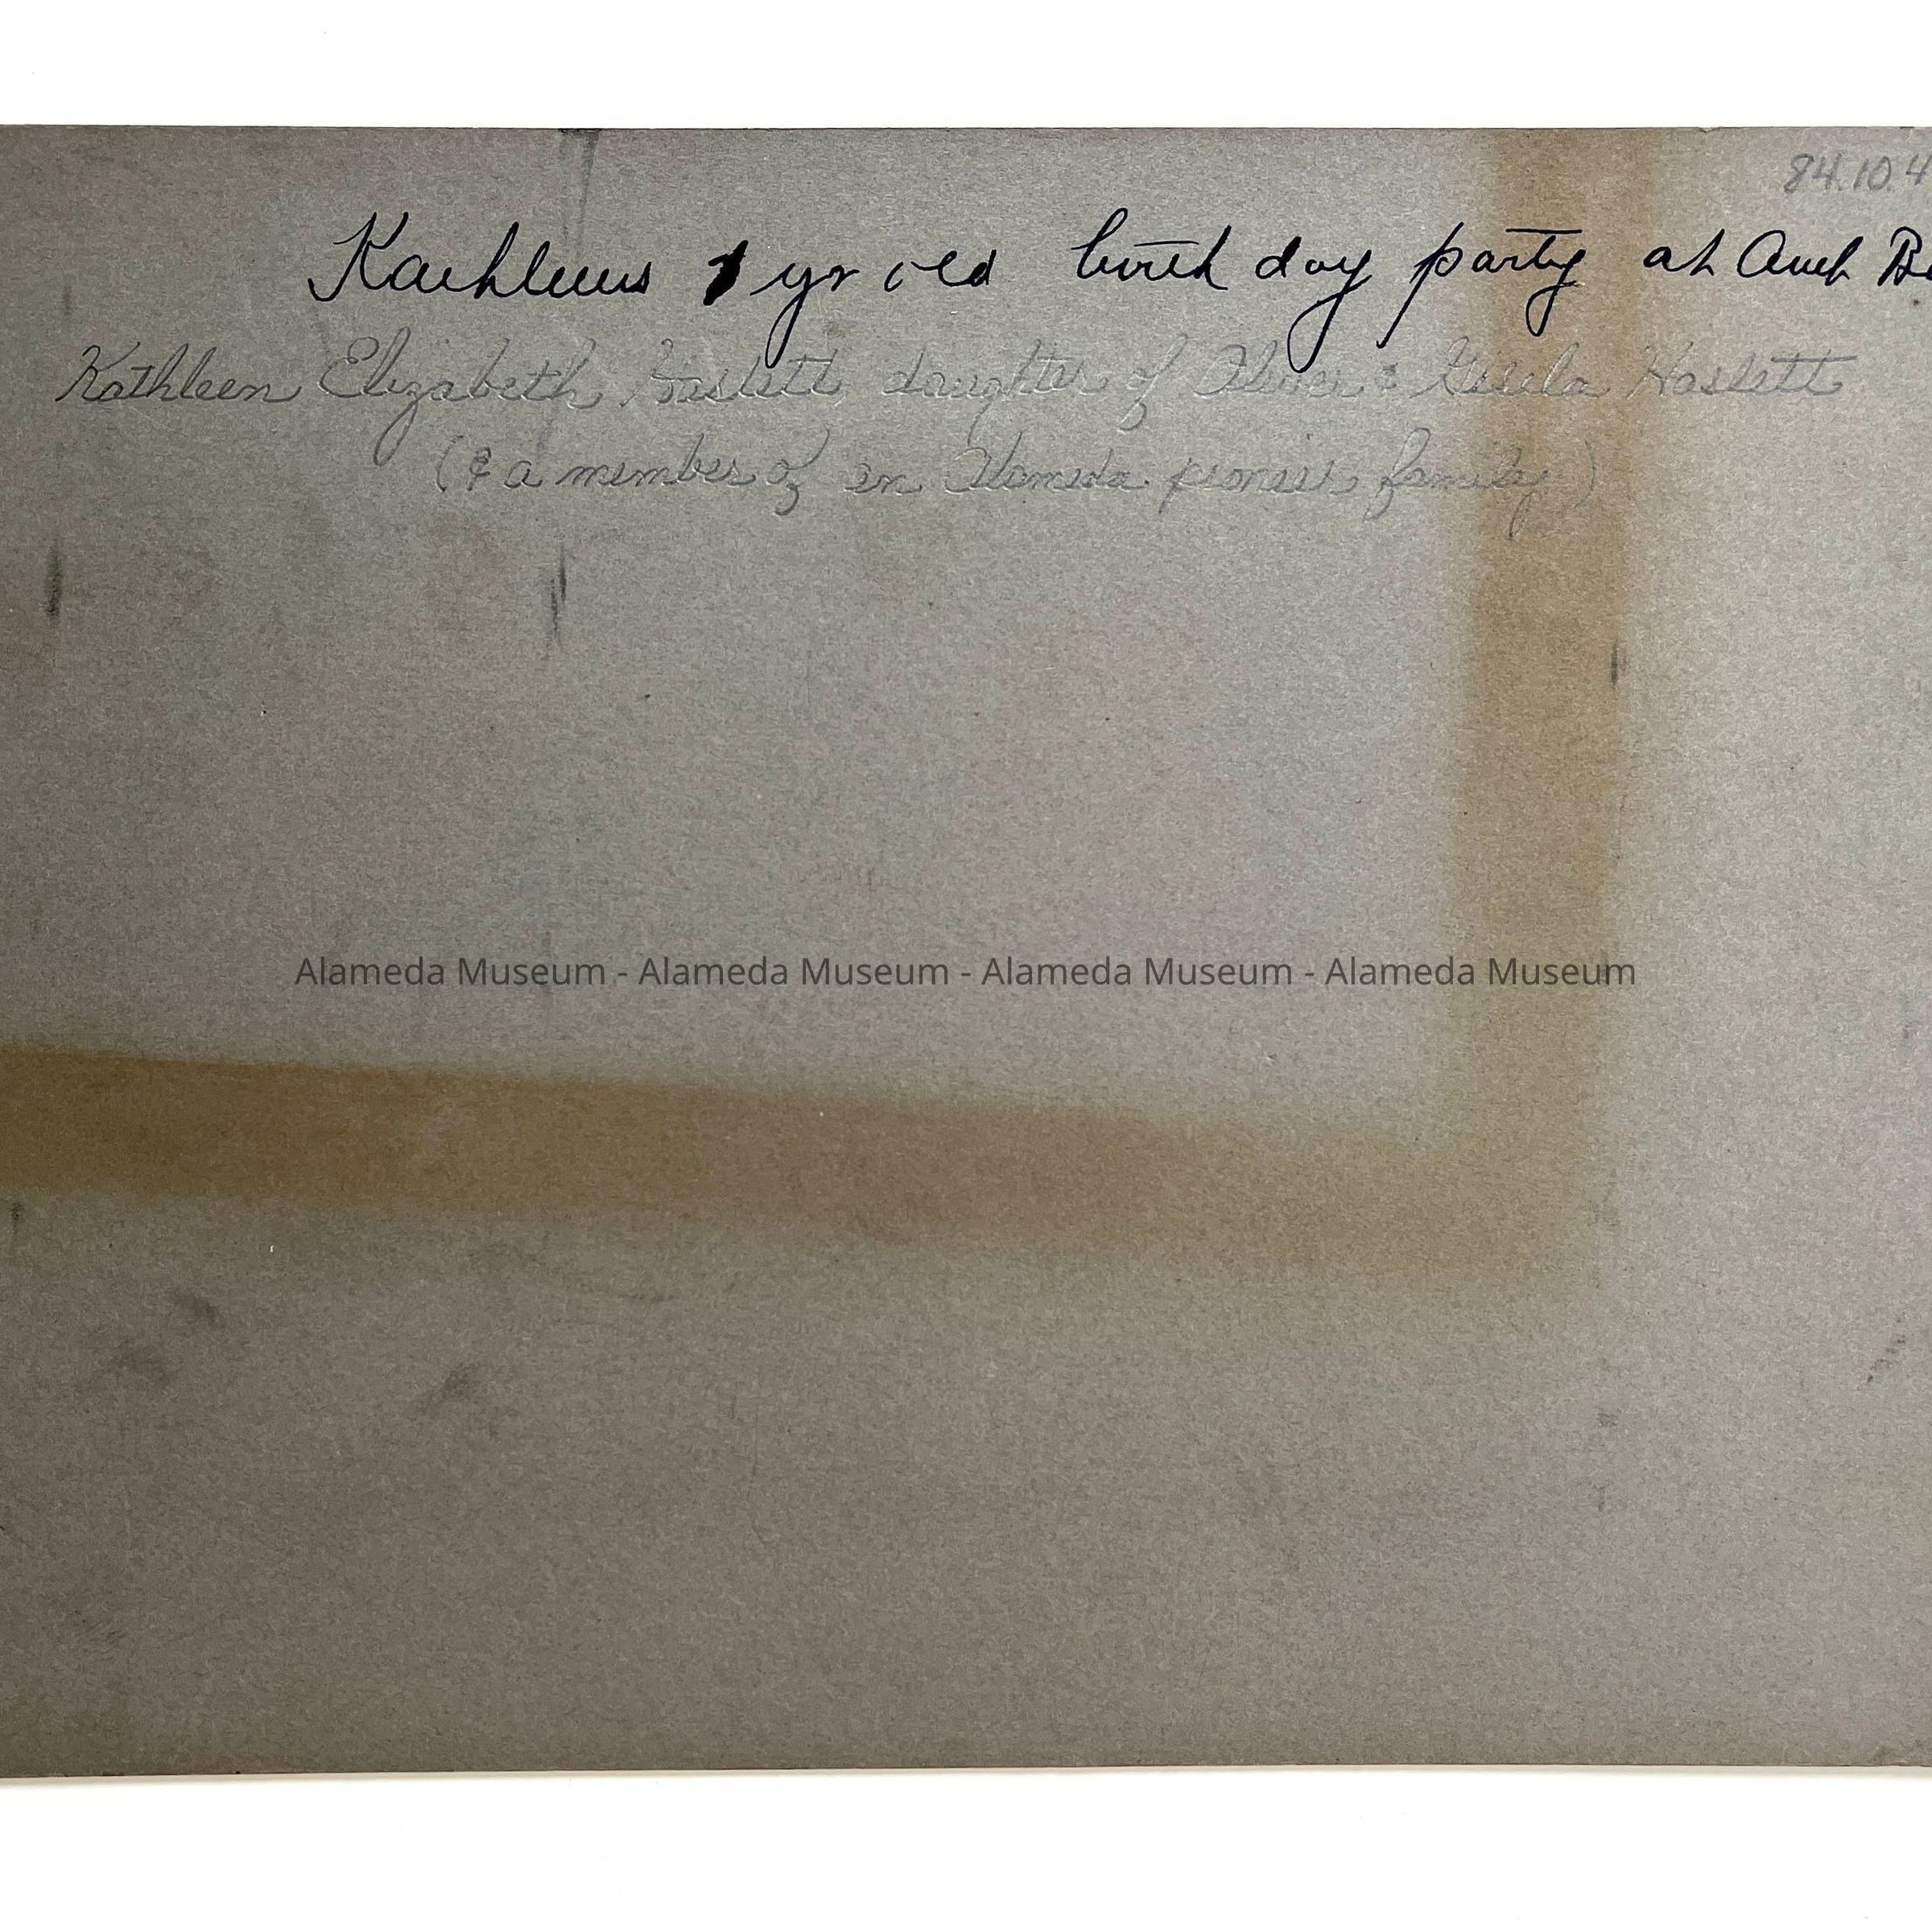 84.10.4
Kathleens 1 yr old birth day party at Aunt Be
Kathleen Elizabeth Haslett, daughter of Oliver & Gisela Haslett
(& a member of an Alameda pioneer family)
Alameda Museum - Alameda Museum - Alameda Museum - Alameda Museum